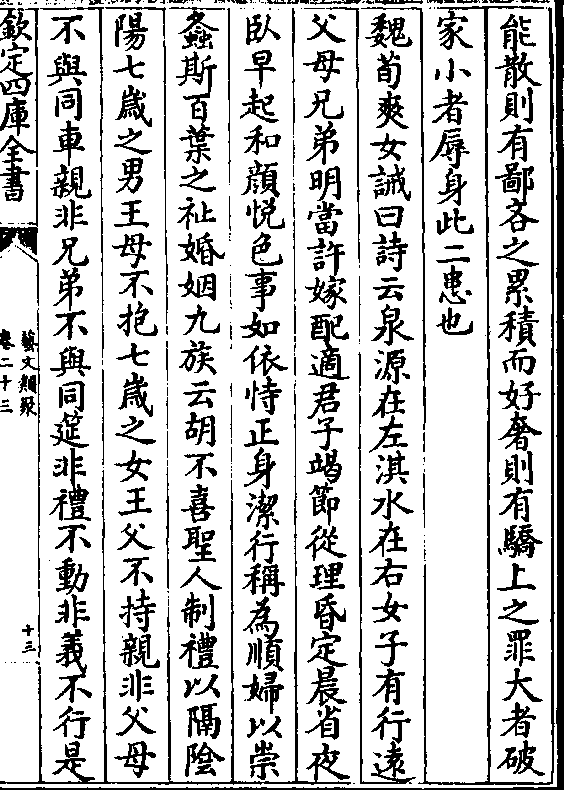 能散則有鄙吝之累積而好奢則有驕上之罪大者破
家小者辱身此二患也
魏荀爽女誡曰詩云泉源在左淇水在右女子有行遠
父母兄弟明當許嫁配適君子竭節從理昏定晨省夜
臥早起和顔悦色事如依恃正身潔行稱為順婦以崇
螽斯百葉之祉婚姻九族云胡不喜聖人制禮以隔陰
陽七歲之男王母不抱七歲之女王父不持親非父母
不與同車親非兄弟不與同筵非禮不動非義不行是
欽定四庫全書
藝文類聚
卷二十三
十三